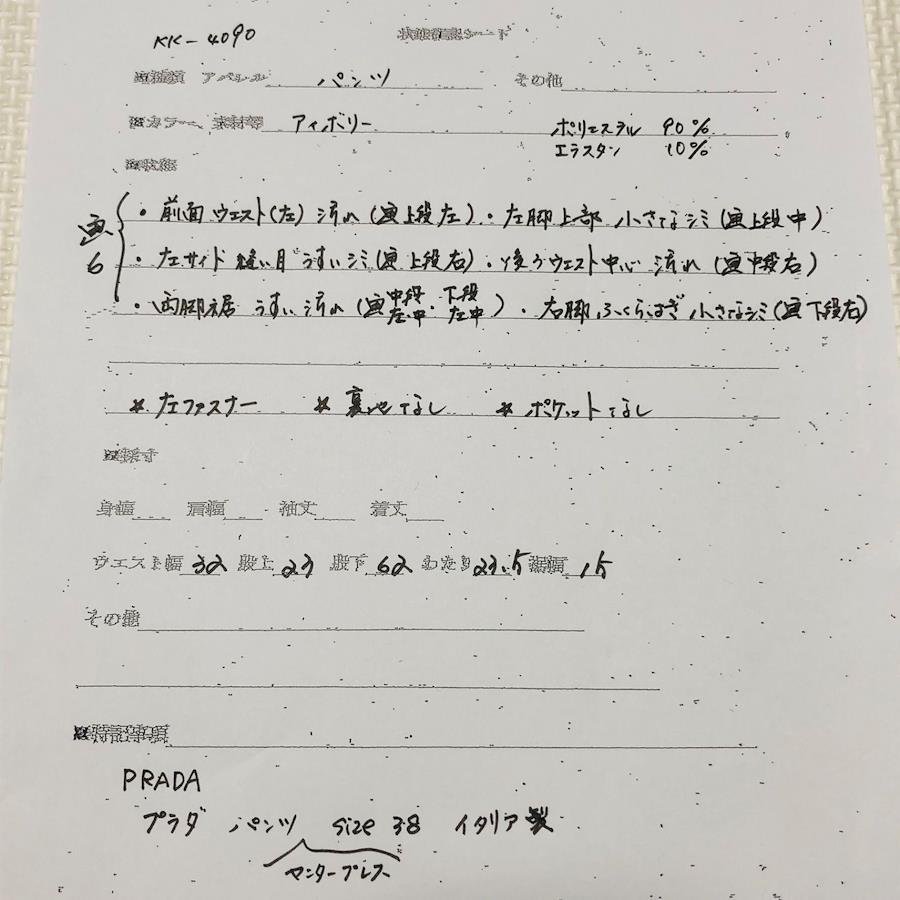 KK-4090
状態確認シート
■種類 アパレル パンツ その他
■カラー、素材等 アイボリー ポリエステル 90%
エラスタン 10%
■状態
画6
・前面ウエスト(左) 汚れ(画上段左)・左脚上部 小さなシミ(画上段中)
・左サイド 縫い目 うすいシミ(画上段右)・後ろウエスト中心 汚れ(画中段右)
・両脚裾 うすい汚れ(画中段左中・下段左中)・右脚ふくらはぎ 小さなシミ(画下段右)
*左ファスナー *裏地なし *ポケットなし
■採寸
身幅 肩幅 袖丈 着丈
ウエスト幅 32 股上 23 股下 62 わたり 23.5 裾幅 15
その他
■特記事項
PRADA
プラダ パンツ size 38 イタリア製
センタープレス